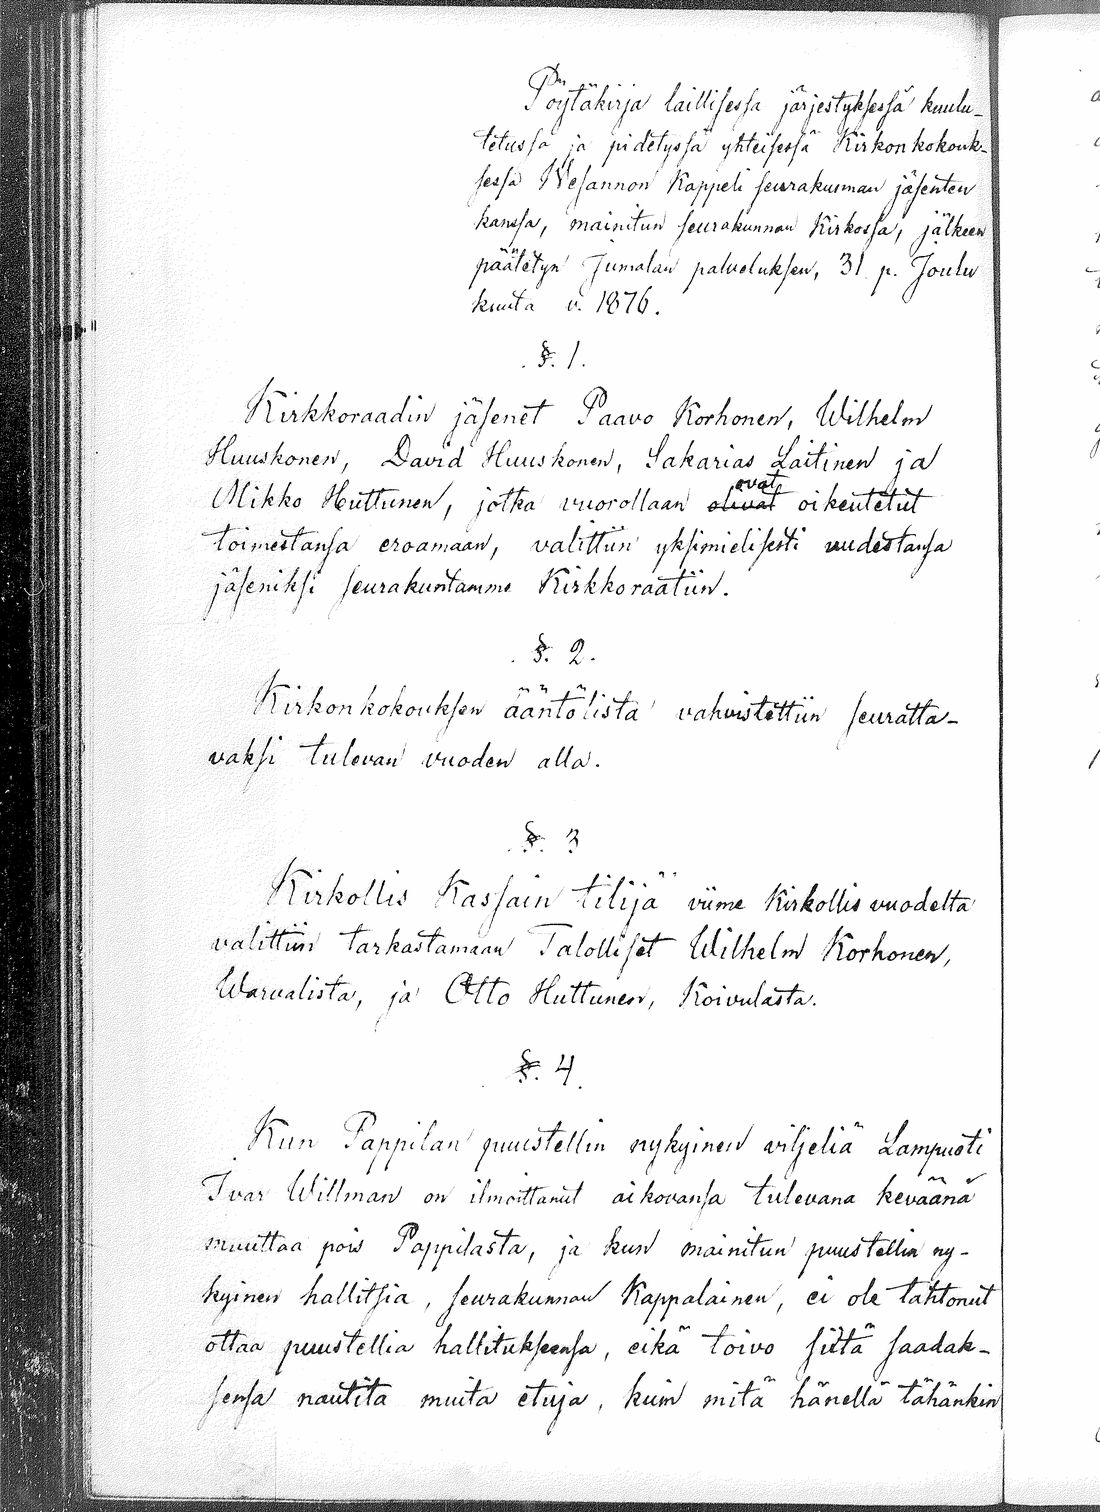 Pöytäkirja laillisessa järjestyksessä kuulu-
tetussa ja pidetyssä yhteisessä Kirkonkokouk-
sessa Wesannon Kappeli seurakunnan jäsenten
kanssa, mainitun seurakunnan Kirkossa, jälkeen
päätetyn Jumalan palveluksen, 31 p. Joulu
kuuta v. 1876.
§. 1.
Kirkkoraadin jäsenet Paavo Korhonen, Wilhelm
Huuskonen, David Huuskonen, Sakarias Laitinen ja
ovat
Mikko Huttunen, jotka vuorollaan olivat oikeutetut
toimestansa eroamaan, valittiin yksimielisesti uudestansa
jäseniksi seurakuntamme Kirkkoraatiin.
§. 2.
Kirkonkokouksen ääntölista vahvistettiin seuratta-
vaksi tulevan vuoden alla.
§. 3
Kirkollis Kassain tilijä viime Kirkollis vuodelta
valittiin tarkastamaan Talolliset Wilhelm Korhonen,
Warvalista, ja Otto Huttunen, Koivulasta.
§. 4.
Kun Pappilan puustellin nykyinen viljeliä Lampuoti
Ivar Willman on ilmoittanut aikovansa tulevana keväänä
muuttaa pois Pappilasta, ja kun mainitun puustellin ny-
kyinen hallitsia, seurakunnan Kappalainen, ei ole tahtonut
ottaa puustellia hallitukseensa, eikä toivo siitä saadak-
sensa nautita muita etuja, kuin mitä hänellä tähänkin